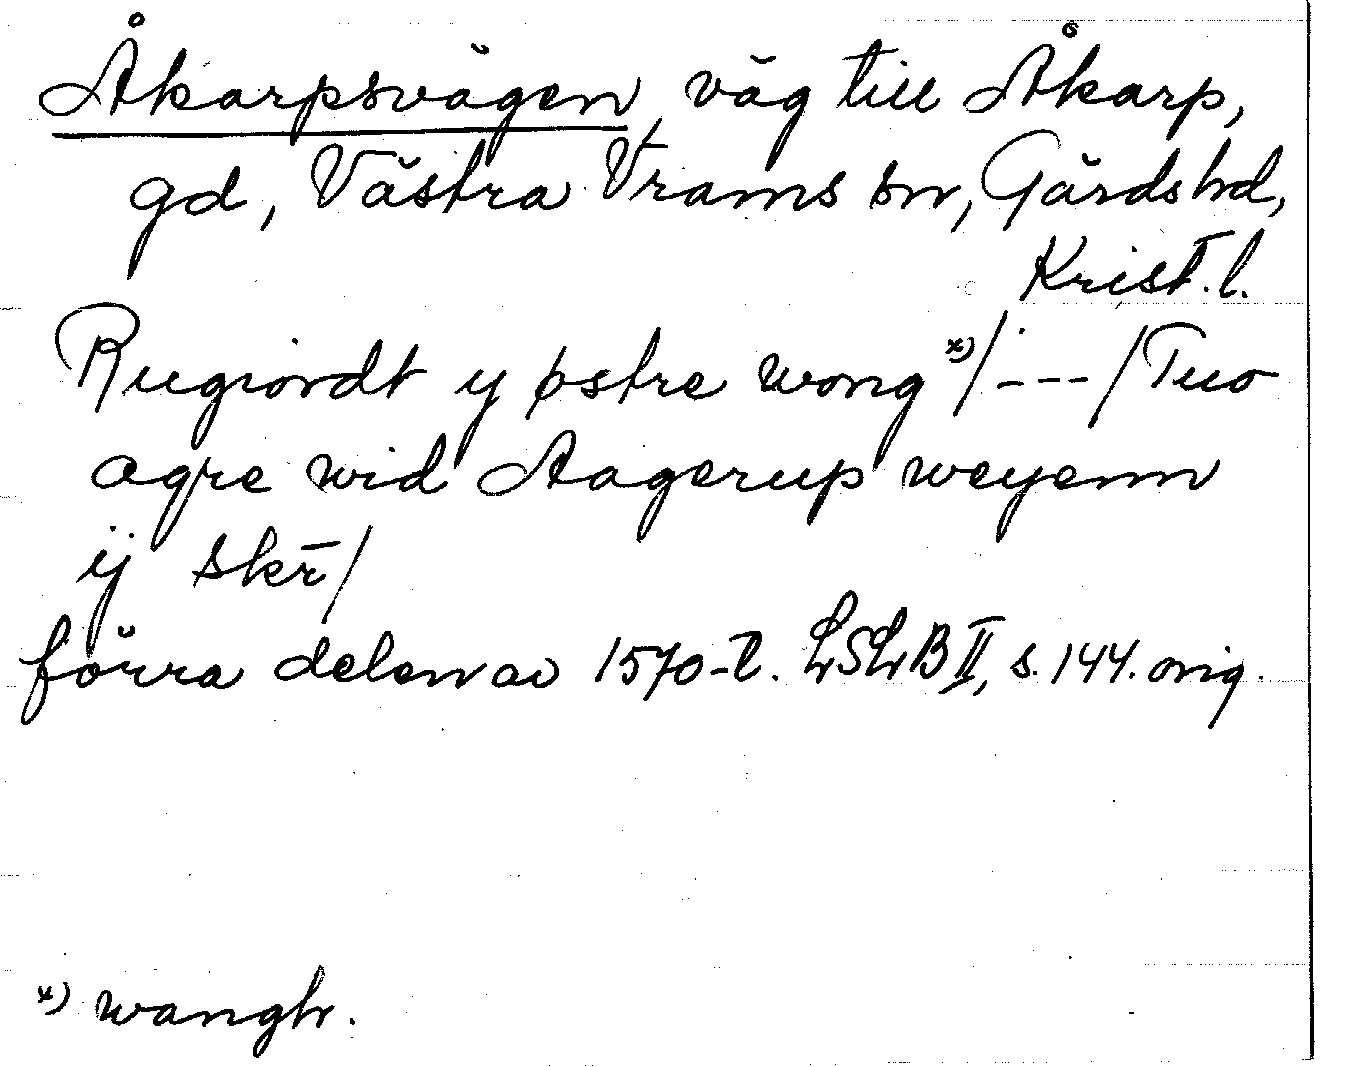 Åkarpsvägen, väg till Åkarp,
gd, Västra Vrams sn, Gärds hd,
Krist. l.
Rugiordt y østre wong x) / --- / Tuo
agre wid Aagerup weyenn
ij skr̄ /
förra delen av 1570-t. LSLB II, s. 144. orig.
x) wangh.